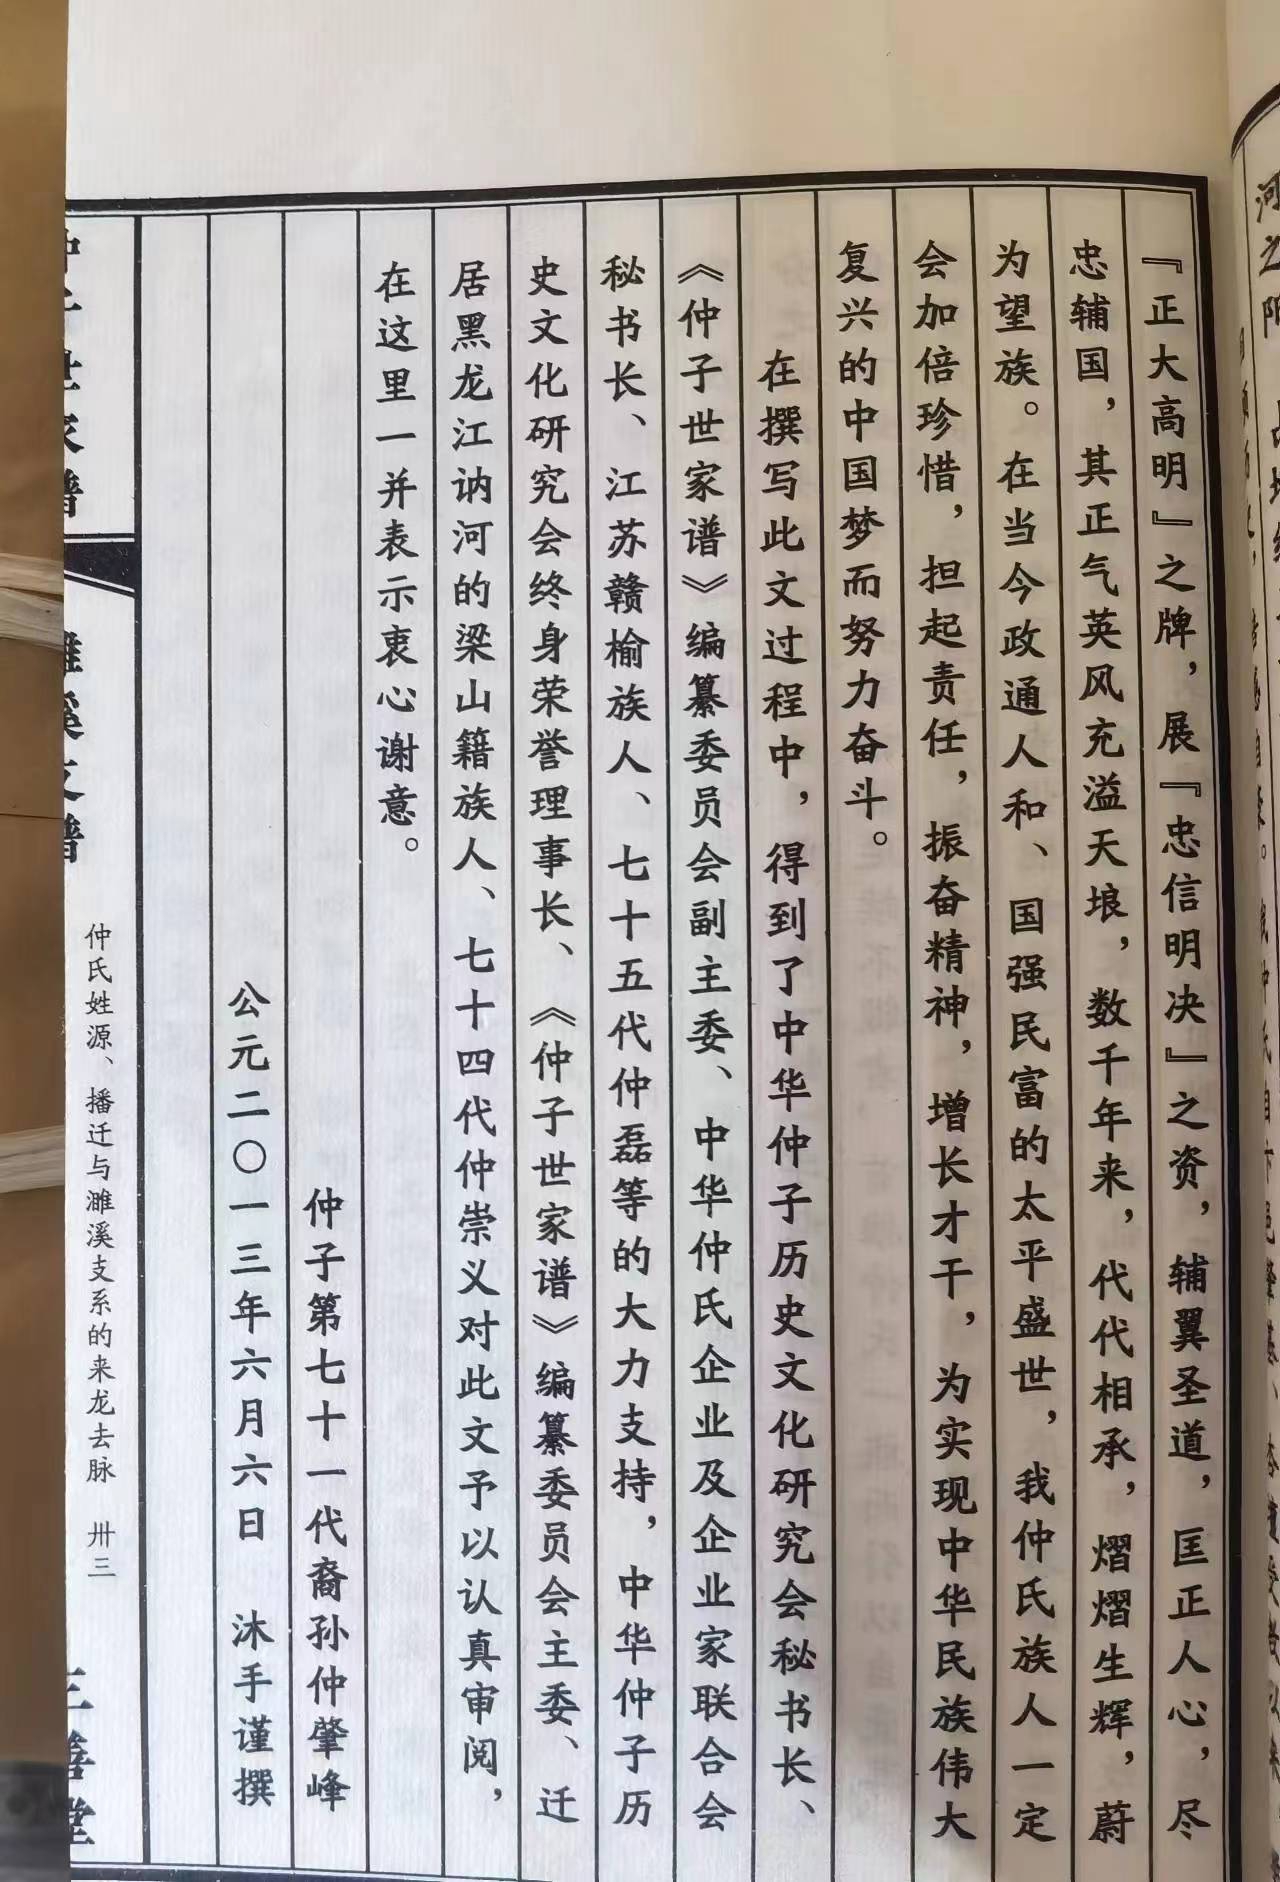 『正大高明』之牌，展『忠信明决』之资，辅翼圣道，匡正人心，尽
忠辅国，其正气英风充溢天埌，数千年来，代代相承，熠熠生辉，蔚
为望族。在当今政通人和、国强民富的太平盛世，我仲氏族人一定
会加倍珍惜，担起责任，振奋精神，增长才干，为实现中华民族伟大
复兴的中国梦而努力奋斗。
在撰写此文过程中，得到了中华仲子历史文化研究会秘书长、
《仲子世家谱》编纂委员会副主委、中华仲氏企业及企业家联合会
秘书长、江苏赣榆族人、七十五代仲磊等的大力支持，中华仲子历
史文化研究会终身荣誉理事长、《仲子世家谱》编纂委员会主委、迁
居黑龙江讷河的梁山籍族人、七十四代仲崇义对此文予以认真审阅，
在这里一并表示衷心谢意。
仲子第七十一代裔孙仲肇峰
公元二〇一三年六月六日 沐手谨撰
仲子世家谱
濉溪支谱
仲氏姓源、播迁与濉溪支系的来龙去脉 卅三
三善堂